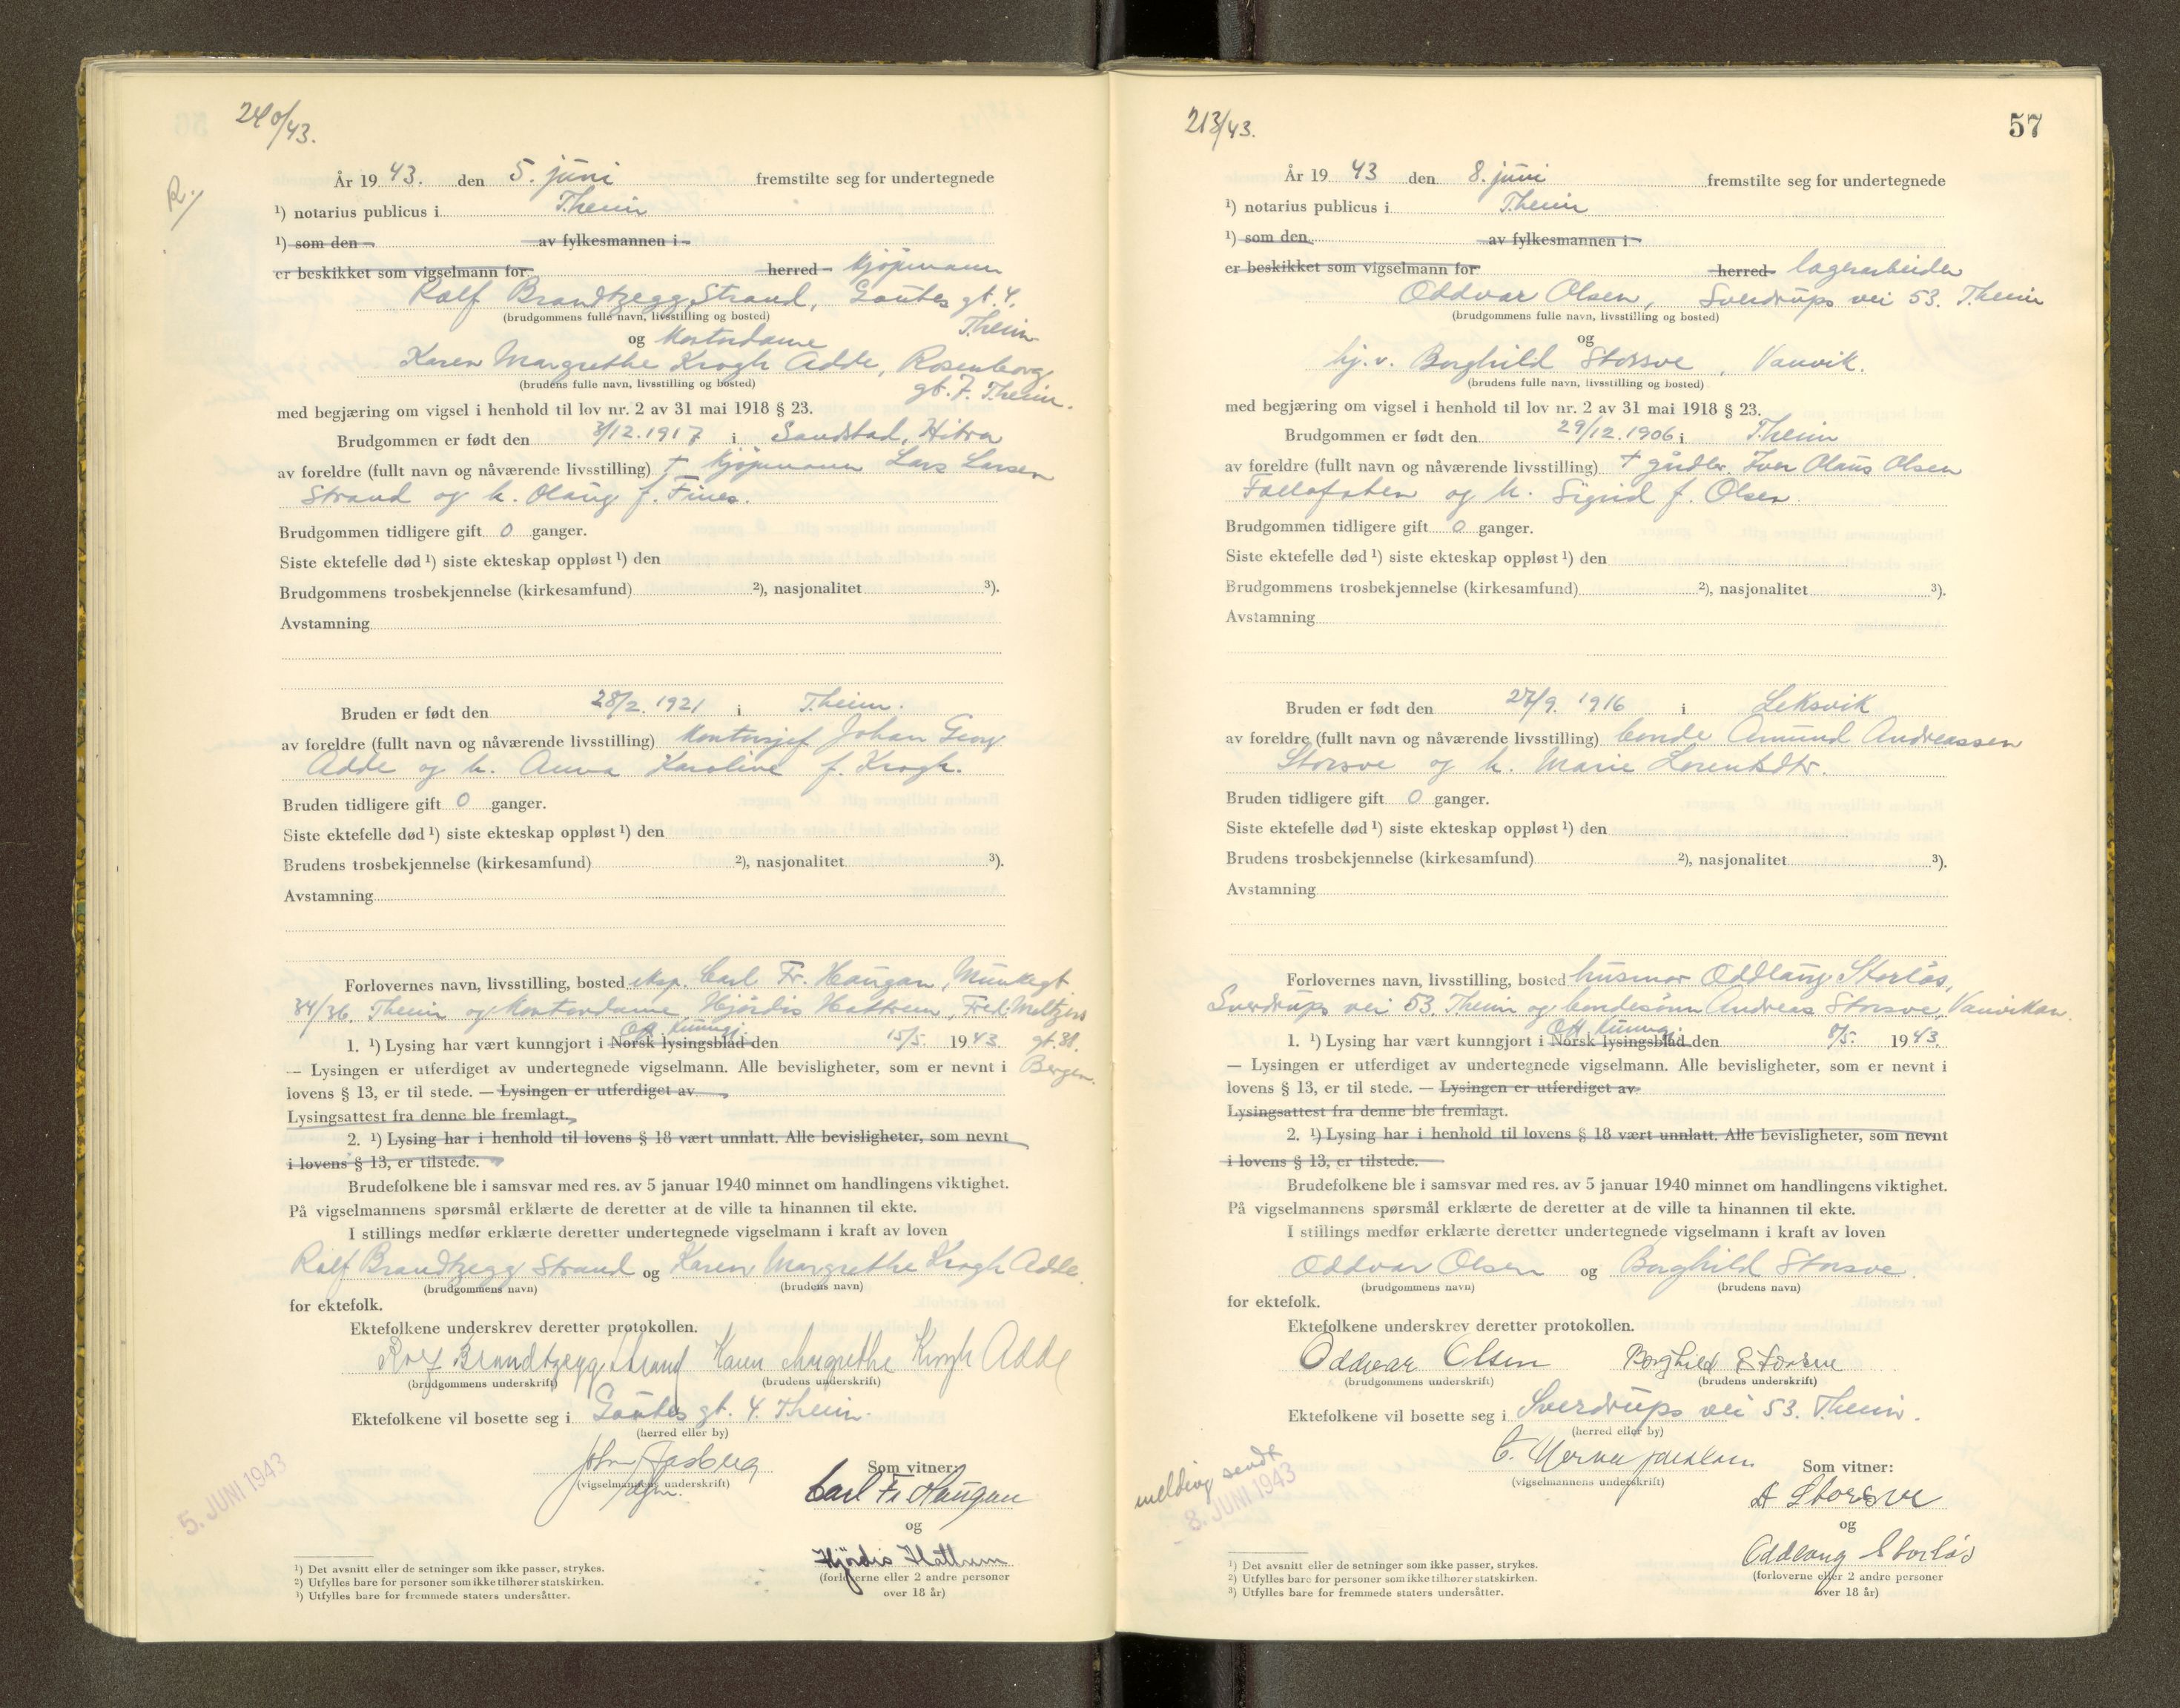 240/43.
R./
År 1943. den 5. juni fremstilte seg for undertegnede
¹) notarius publicus i T.heim
¹) som den av fylkesmannen i
er beskikket som vigselmann for herred kjøpmann
Rolf Brandtzegg Strand, Gautes gt. 4.
(brudgommens fulle navn, livsstilling og bosted) T.heim
og kontordame
Karen Margrethe Krogh Adde, Rosenborg
(brudens fulle navn, livsstilling og bosted) gt. 7. T.heim.
med begjæring om vigsel i henhold til lov nr. 2 av 31 mai 1918 § 23.
Brudgommen er født den 3/12.1917 i Sandstad, Hitra
av foreldre (fullt navn og nåværende livsstilling) † kjøpmann Lars Larsen
Strand og h. Olaug f. Fines.
Brudgommen tidligere gift 0 ganger.
Siste ektefelle død ¹) siste ekteskap oppløst ¹) den
Brudgommens trosbekjennelse (kirkesamfund) ²), nasjonalitet ³).
Avstamning
Bruden er født den 28/2. 1921 i T.heim.
av foreldre (fullt navn og nåværende livsstilling) kontorsjef Johan Georg
Adde og h. Anna Karoline f. Krogh.
Bruden tidligere gift 0 ganger.
Siste ektefelle død ¹) siste ekteskap oppløst ¹) den
Brudens trosbekjennelse (kirkesamfund) ²), nasjonalitet ³).
Avstamning
Forlovernes navn, livsstilling, bosted eksp. Carl Fr. Haugan, Munkegt.
34/36. T.heim og kontordame Hjördis Hattrem, Fred. Meltzers
Off. kunngj.
1. ¹) Lysing har vært kunngjort i Norsk lysingsblad den 15/5. 1943. gt. 38.
— Lysingen er utferdiget av undertegnede vigselmann. Alle bevisligheter, som er nevnt i Bergen.
lovens § 13, er til stede. — Lysingen er utferdiget av
Lysingsattest fra denne ble fremlagt.
2. ¹) Lysing har i henhold til lovens § 18 vært unnlatt. Alle bevisligheter, som nevnt
i lovens § 13, er tilstede.
Brudefolkene ble i samsvar med res. av 5 januar 1940 minnet om handlingens viktighet.
På vigselmannens spørsmål erklærte de deretter at de ville ta hinannen til ekte.
I stillings medfør erklærte deretter undertegnede vigselmann i kraft av loven
Rolf Brandtzegg Strand og Karen Margrethe Krogh Adde.
(brudgommens navn) (brudens navn)
for ektefolk.
Ektefolkene underskrev deretter protokollen.
Rolf Brandtzegg Strand Karen Margrethe Krogh Adde
(brudgommens underskrift) (brudens underskrift)
Ektefolkene vil bosette seg i Gautes gt. 4. T.heim.
(herred eller by)
(vigselmannens underskrift) Som vitner:
Carl Fr. Haugan
5. JUNI 1943
og
Hjördis Hattrem
(forloverne eller 2 andre personer
over 18 år)
¹) Det avsnitt eller de setninger som ikke passer, strykes.
²) Utfylles bare for personer som ikke tilhører statskirken.
³) Utfylles bare for fremmede staters undersåtter.
213/43.
57
År 1943 den 8. juni fremstilte seg for undertegnede
¹) notarius publicus i T.heim
¹) som den av fylkesmannen i
er beskikket som vigselmann for herred lagerarbeider
Oddvar Olsen, Sverdrups vei 53. T.heim
(brudgommens fulle navn, livsstilling og bosted)
og
hj.v. Borghild Storsve, Vanvik.
(brudens fulle navn, livsstilling og bosted)
med begjæring om vigsel i henhold til lov nr. 2 av 31 mai 1918 § 23.
Brudgommen er født den 29/12.1906 i T.heim
av foreldre (fullt navn og nåværende livsstilling) † gårdbr. Iver Olaus Olsen
og h. Sigrid f. Olsen.
Brudgommen tidligere gift 0 ganger.
Siste ektefelle død ¹) siste ekteskap oppløst ¹) den
Brudgommens trosbekjennelse (kirkesamfund) ²), nasjonalitet ³).
Avstamning
Bruden er født den 27/9. 1916 i Leksvik
av foreldre (fullt navn og nåværende livsstilling) bonde Amund Andreassen
Storsve og h. Marie Lorentsdtr.
Bruden tidligere gift 0 ganger.
Siste ektefelle død ¹) siste ekteskap oppløst ¹) den
Brudens trosbekjennelse (kirkesamfund) ²), nasjonalitet ³).
Avstamning
Forlovernes navn, livsstilling, bosted husmor Oddlaug Storløs,
Sverdrups vei 53. T.heim og bondesønn Andreas Storsve, Vanvikan.
Off. kunngj.
1. ¹) Lysing har vært kunngjort i Norsk lysingsblad den 8/5. 1943.
— Lysingen er utferdiget av undertegnede vigselmann. Alle bevisligheter, som er nevnt i
lovens § 13, er til stede. — Lysingen er utferdiget av
Lysingsattest fra denne ble fremlagt.
2. ¹) Lysing har i henhold til lovens § 18 vært unnlatt. Alle bevisligheter, som nevnt
i lovens § 13, er tilstede.
Brudefolkene ble i samsvar med res. av 5 januar 1940 minnet om handlingens viktighet.
På vigselmannens spørsmål erklærte de deretter at de ville ta hinannen til ekte.
I stillings medfør erklærte deretter undertegnede vigselmann i kraft av loven
Oddvar Olsen og Borghild Storsve.
(brudgommens navn) (brudens navn)
for ektefolk.
Ektefolkene underskrev deretter protokollen.
Oddvar Olsen Borghild Storsve
(brudgommens underskrift) (brudens underskrift)
Ektefolkene vil bosette seg i Sverdrups vei 53. T.heim.
(herred eller by)
(vigselmannens underskrift) Som vitner:
melding sendt
8. JUNI 1943
A Storsve
og
Oddlaug Storløs
(forloverne eller 2 andre personer
over 18 år)
¹) Det avsnitt eller de setninger som ikke passer, strykes.
²) Utfylles bare for personer som ikke tilhører statskirken.
³) Utfylles bare for fremmede staters undersåtter.